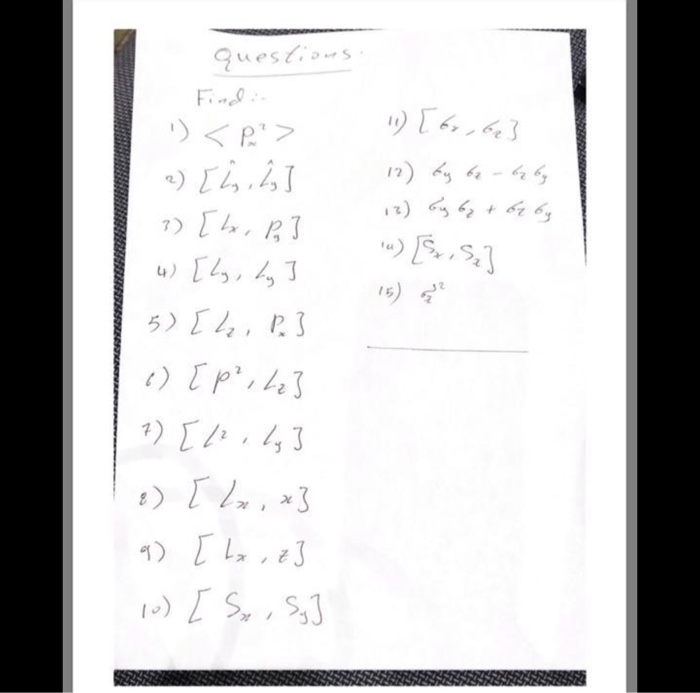 Questions.
Find:-
1) < Pₓ² >
2) [L̂y, L̂y]
3) [Lx, Py]
4) [Ly, Ly]
5) [Lz, Px]
6) [p², Lz]
7) [L², Ly]
8) [Lx, x]
9) [Lx, z]
10) [Sx, Sy]
11) [σx, σz]
12) σy σz - σz σy
13) σy σz + σz σy
14) [Sx, Sz]
15) σz²